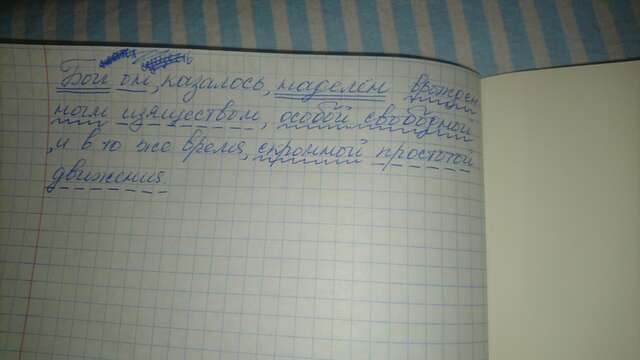 Был он, казалось, наделён врожден
ным изяществом, особой свободной
, и в то же время, скромной простотой
движения.